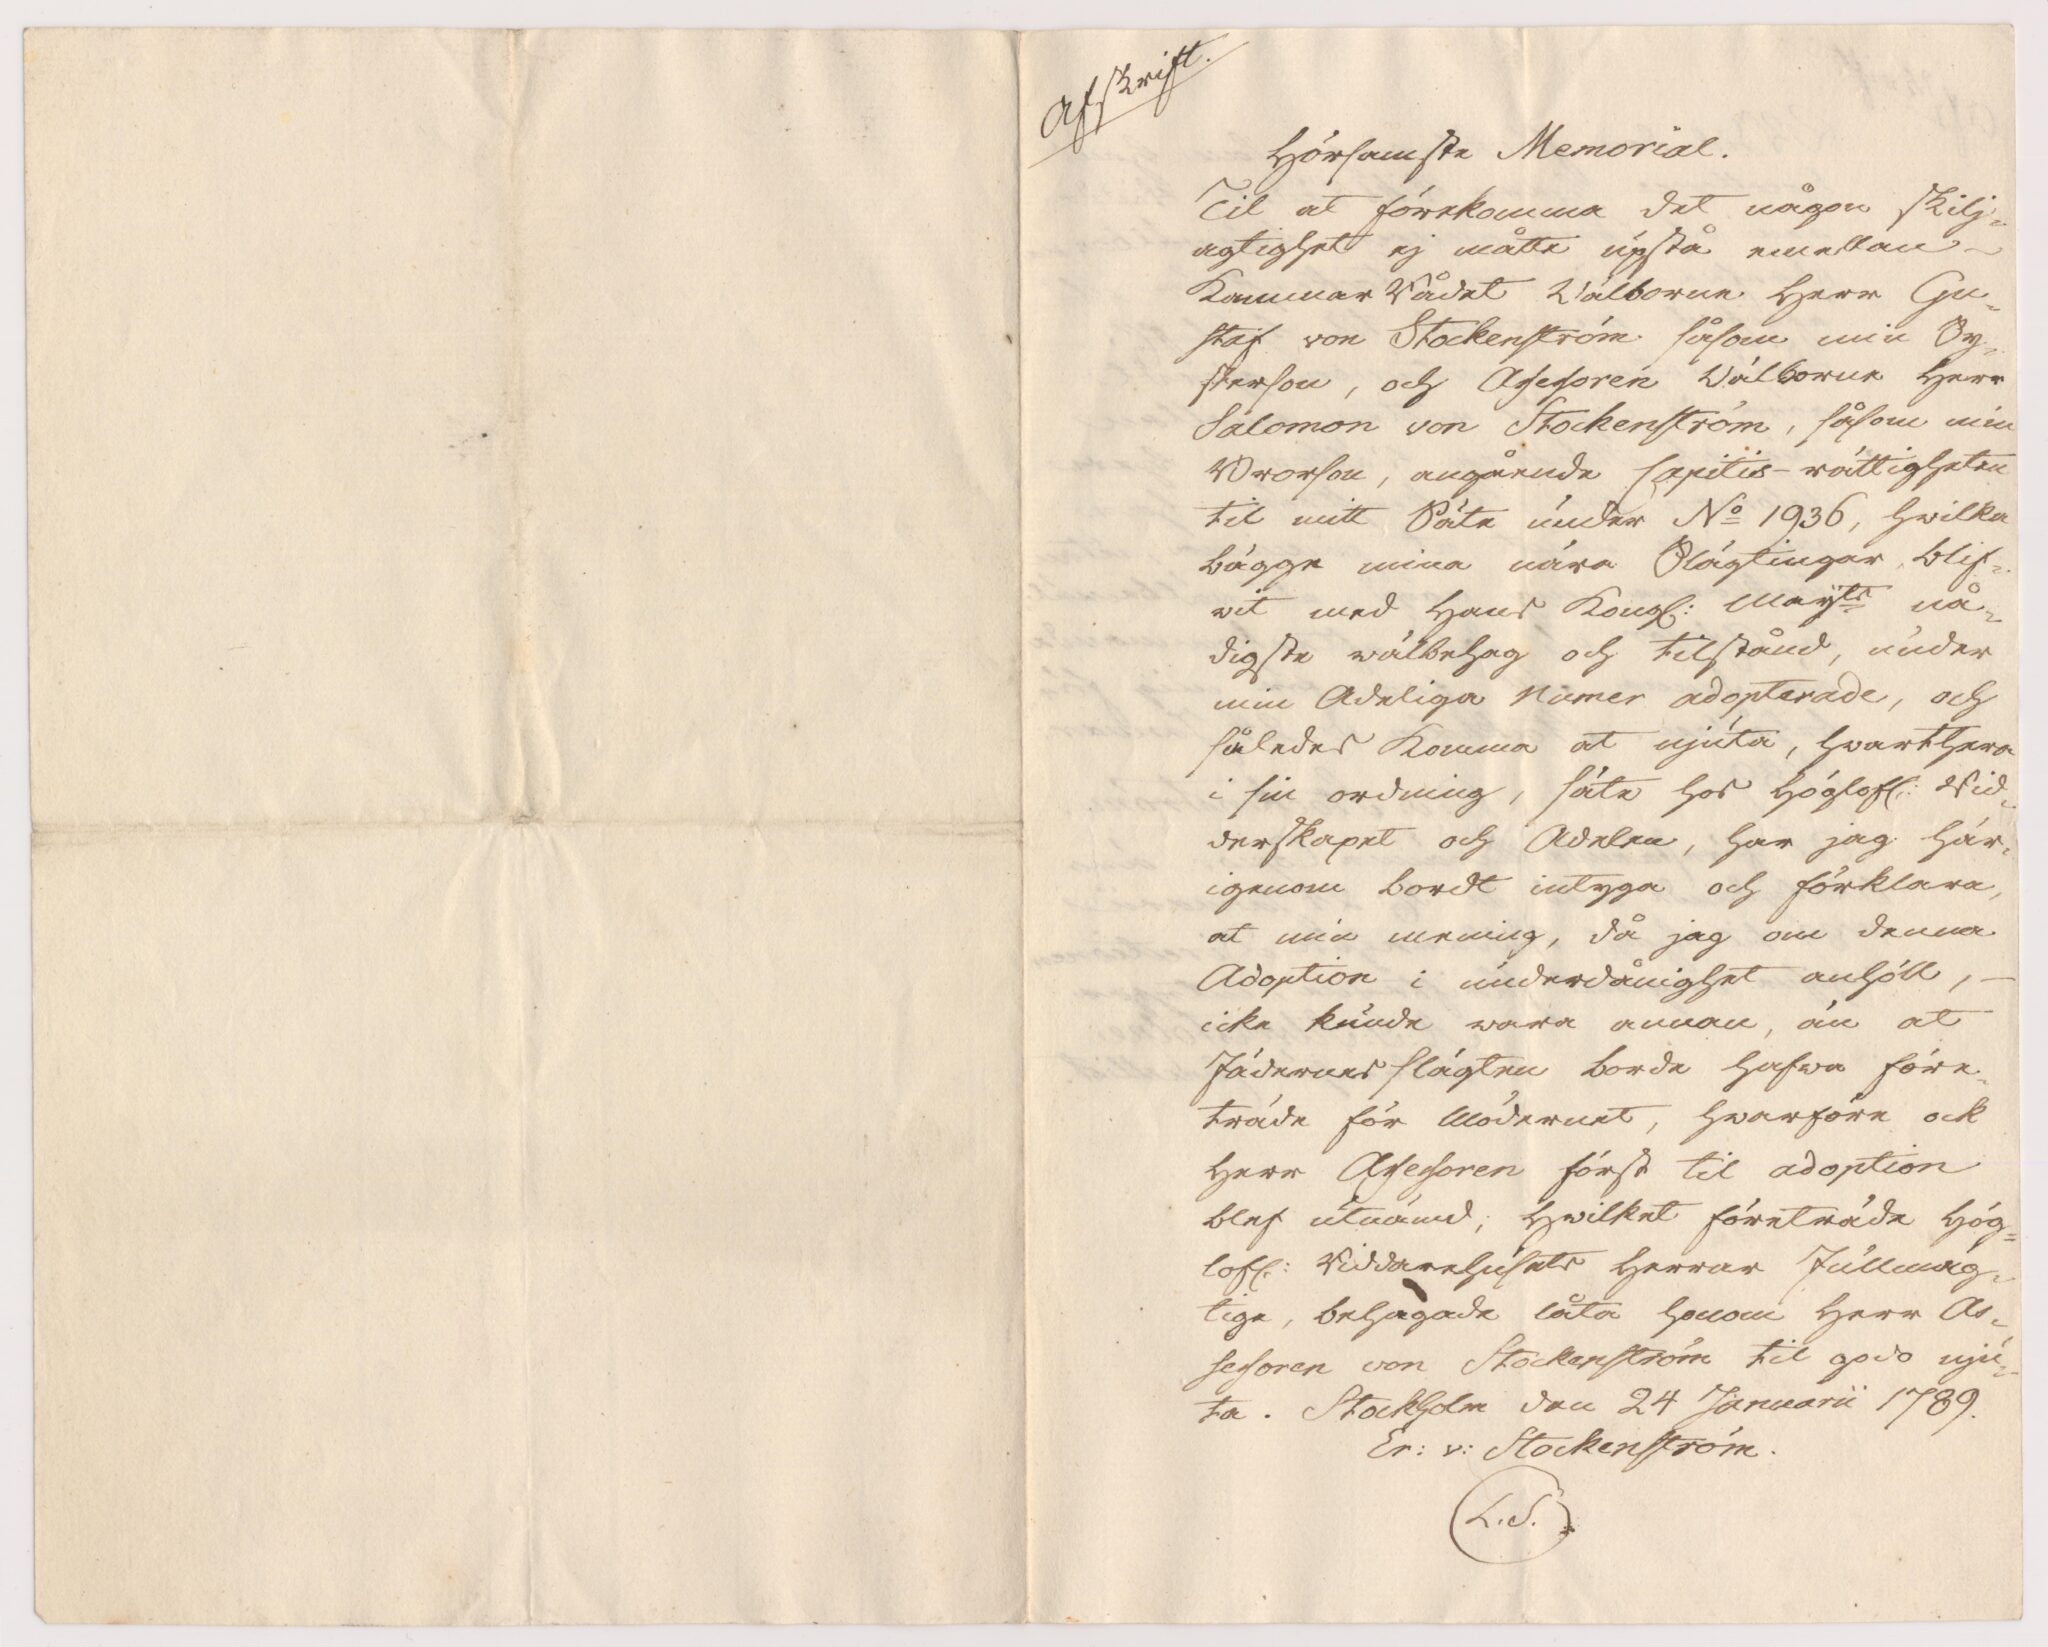 Afskrift.
Hörsamste Memorial.
Til at förekomma det någon skilj-
agtighet ej måtte upstå emellan
Kammar Rådet Wälborne Herr Gu-
staf von Stockenström såsom min Sy-
sterson, och Assessoren Wälborne Herr
Salomon von Stockenström, såsom min
Brorson, angående Capitis-rättigheten
til mitt Säte under No 1936, hwilka
bägge mina nära Slägtingar blif-
wit med Hans Kongl: Mayts nå-
digste wälbehag och tilstånd, under
min Adeliga Numer adopterade, och
således komma at njuta, hwarthera
i sin ordning, säte hos Höglofl: Rid-
derskapet och Adelen, har jag här-
igenom bordt intyga och förklara,
at min mening, då jag om denna
Adoption i underdånighet anhöll,
icke kunde wara annan, än at
Fädernes slägten borde hafwa före-
träde för Mödernet, hwarföre ock
Herr Assessoren först til adoption
blef utnämd; hwilket företräde Hög-
lofl: Riddarehusets Herrar Fullmäg-
tige, behagade låta honom Herr As-
sessoren von Stockenström til godo nju-
ta. Stockholm den 24 Januarii 1789.
Er: v: Stockenström.
L.S.